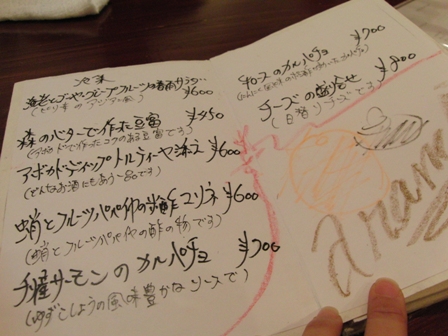 冷菜
海老とゴーヤ、グレープフルーツの春雨サラダ ¥600
(ピリ辛のアジアン風)
森のバターで作った豆腐 ¥450
(アボカドで作ったコクのある豆腐です)
アボカドディップトルティーヤ添え ¥600
(どんなお酒にもあう一品です)
蛸とフルーツパパイヤの ¥600
(蛸とフルーツパパイヤの酢の物です)
サーモンのカルパチョ ¥700
(ゆずこしょうの風味豊かなソースで)
牛ロースのカルパチョ ¥700
チーズの盛合せ ¥800
(日替りチーズです)